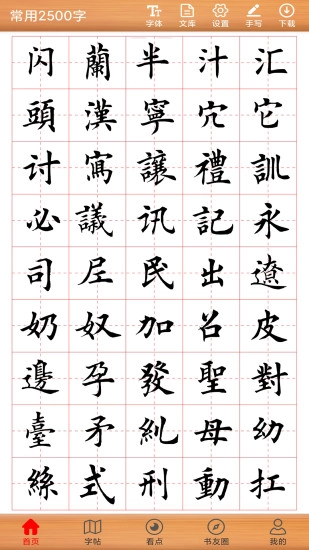 常用2500字
字体 文库 设置 手写 下载
闪蘭半汁汇
頭漢寧穴它
讨寫讓禮訓
必議讯記永
司尼民出遼
奶奴加召皮
邊孕發聖對
臺矛糺母幼
絲式刑動扛
首页 字帖 看点 书友圈 我的